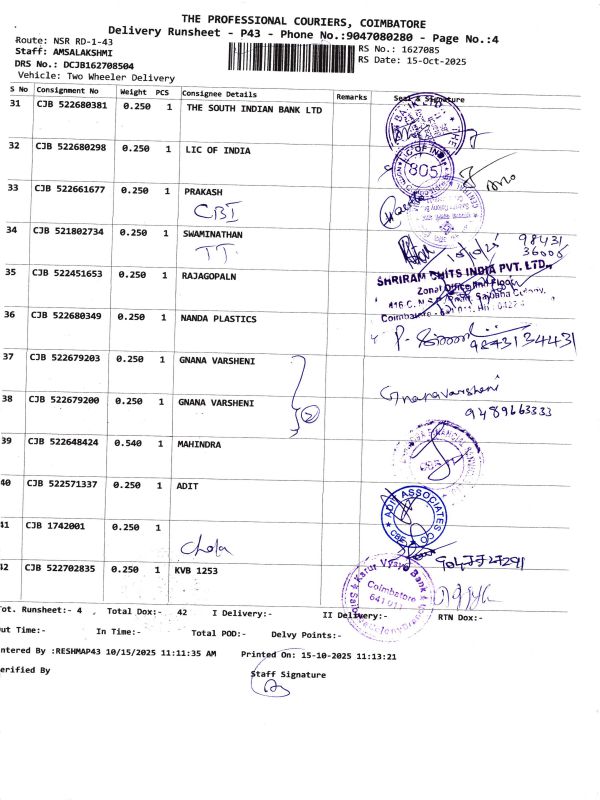 THE PROFESSIONAL COURIERS, COIMBATORE
Delivery Runsheet - P43 - Phone No.:9047080280 - Page No.:4
Route: NSR RD-1-43
RS No.: 1627085
Staff: AMSALAKSHMI
RS Date: 15-Oct-2025
DRS No.: DCJB162708504
Vehicle: Two Wheeler Delivery
S No Consignment No Weight PCS Consignee Details Remarks Seal & Signature
31 CJB 522680381 0.250 1 THE SOUTH INDIAN BANK LTD
32 CJB 522680298 0.250 1 LIC OF INDIA
LIC OF INDIA
805
33 CJB 522661677 0.250 1 PRAKASH
CBI
34 CJB 521802734 0.250 1 SWAMINATHAN
TT
98431
36006
35 CJB 522451653 0.250 1 RAJAGOPALN
SHRIRAM CHITS INDIA PVT. LTD.,
Zonal Office
36 CJB 522680349 0.250 1 NANDA PLASTICS
9843134431
37 CJB 522679203 0.250 1 GNANA VARSHENI
38 CJB 522679200 0.250 1 GNANA VARSHENI
2
Gnanavarsheni
9489663333
39 CJB 522648424 0.540 1 MAHINDRA
40 CJB 522571337 0.250 1 ADIT
ADIT ASSOCIATES
CBE
41 CJB 1742001 0.250 1
Chola
42 CJB 522702835 0.250 1 KVB 1253
Karur Vysya Bank
Coimbatore
641 011
Tot. Runsheet:- 4 , Total Dox:- 42 I Delivery:- II Delivery:- RTN Dox:-
Out Time:- In Time:- Total POD:- Delvy Points:-
Entered By :RESHMAP43 10/15/2025 11:11:35 AM Printed On: 15-10-2025 11:13:21
Verified By
Staff Signature